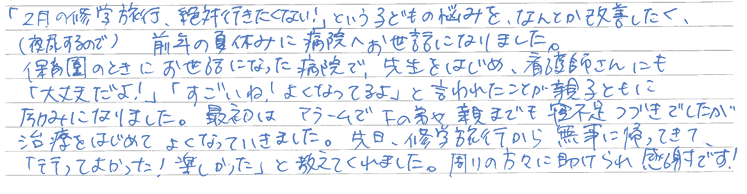 「2月の修学旅行、絶対行きたくない!」という子どもの悩みを、なんとか改善したく、
(夜尿するので) 前年の夏休みに病院へお世話になりました。
保育園のときにお世話になった病院で、先生をはじめ、看護師さんにも
「大丈夫だよ!」「すごいね!よくなってるよ」と言われたことが親子ともに
励みになりました。最初はアラームで下の弟々親までも寝不足つづきでしたが
治療をはじめてよくなっていきました。先日、修学旅行から無事に帰ってきて、
「行ってよかった!楽しかった」と教えてくれました。周りの方々に助けられ感謝です!